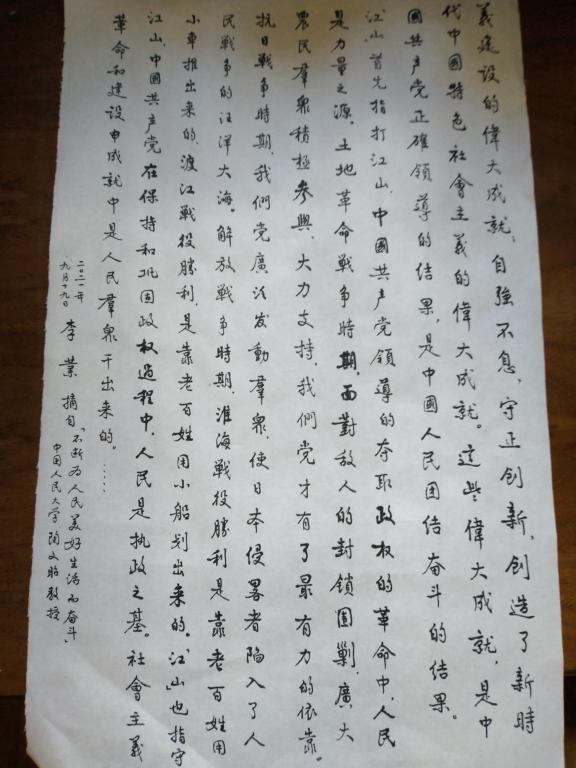 義建设的偉大成就；自強不息，守正创新，创造了新時
代中國特色社會主義的偉大成就。這些偉大成就，是中
國共产党正確领導的结果，是中國人民团结奋斗的结果。
「江山」首先指打江山，中國共产党领導的夺取政权的革命中，人民
是力量之源。土地革命戰争時期，面對敌人的封锁围剿，廣大
農民羣衆積極参與、大力支持，我們党才有了最有力的依靠。
抗日戰争時期，我們党廣泛发動羣衆，使日本侵畧者陷入了人
民戰争的汪洋大海。解放戰争時期，淮海戰役勝利是靠老百姓用
小車推出来的，渡江戰役勝利，是靠老百姓用小船划出来的。「江山」也指守
江山，中國共产党在保持和巩固政权过程中，人民是执政之基。社會主義
革命和建设中成就中是人民羣衆干出来的。……
二〇二一年
九月十九日
李業 摘自「不断为人民美好生活而奋斗」
中国人民大学陶文昭教授